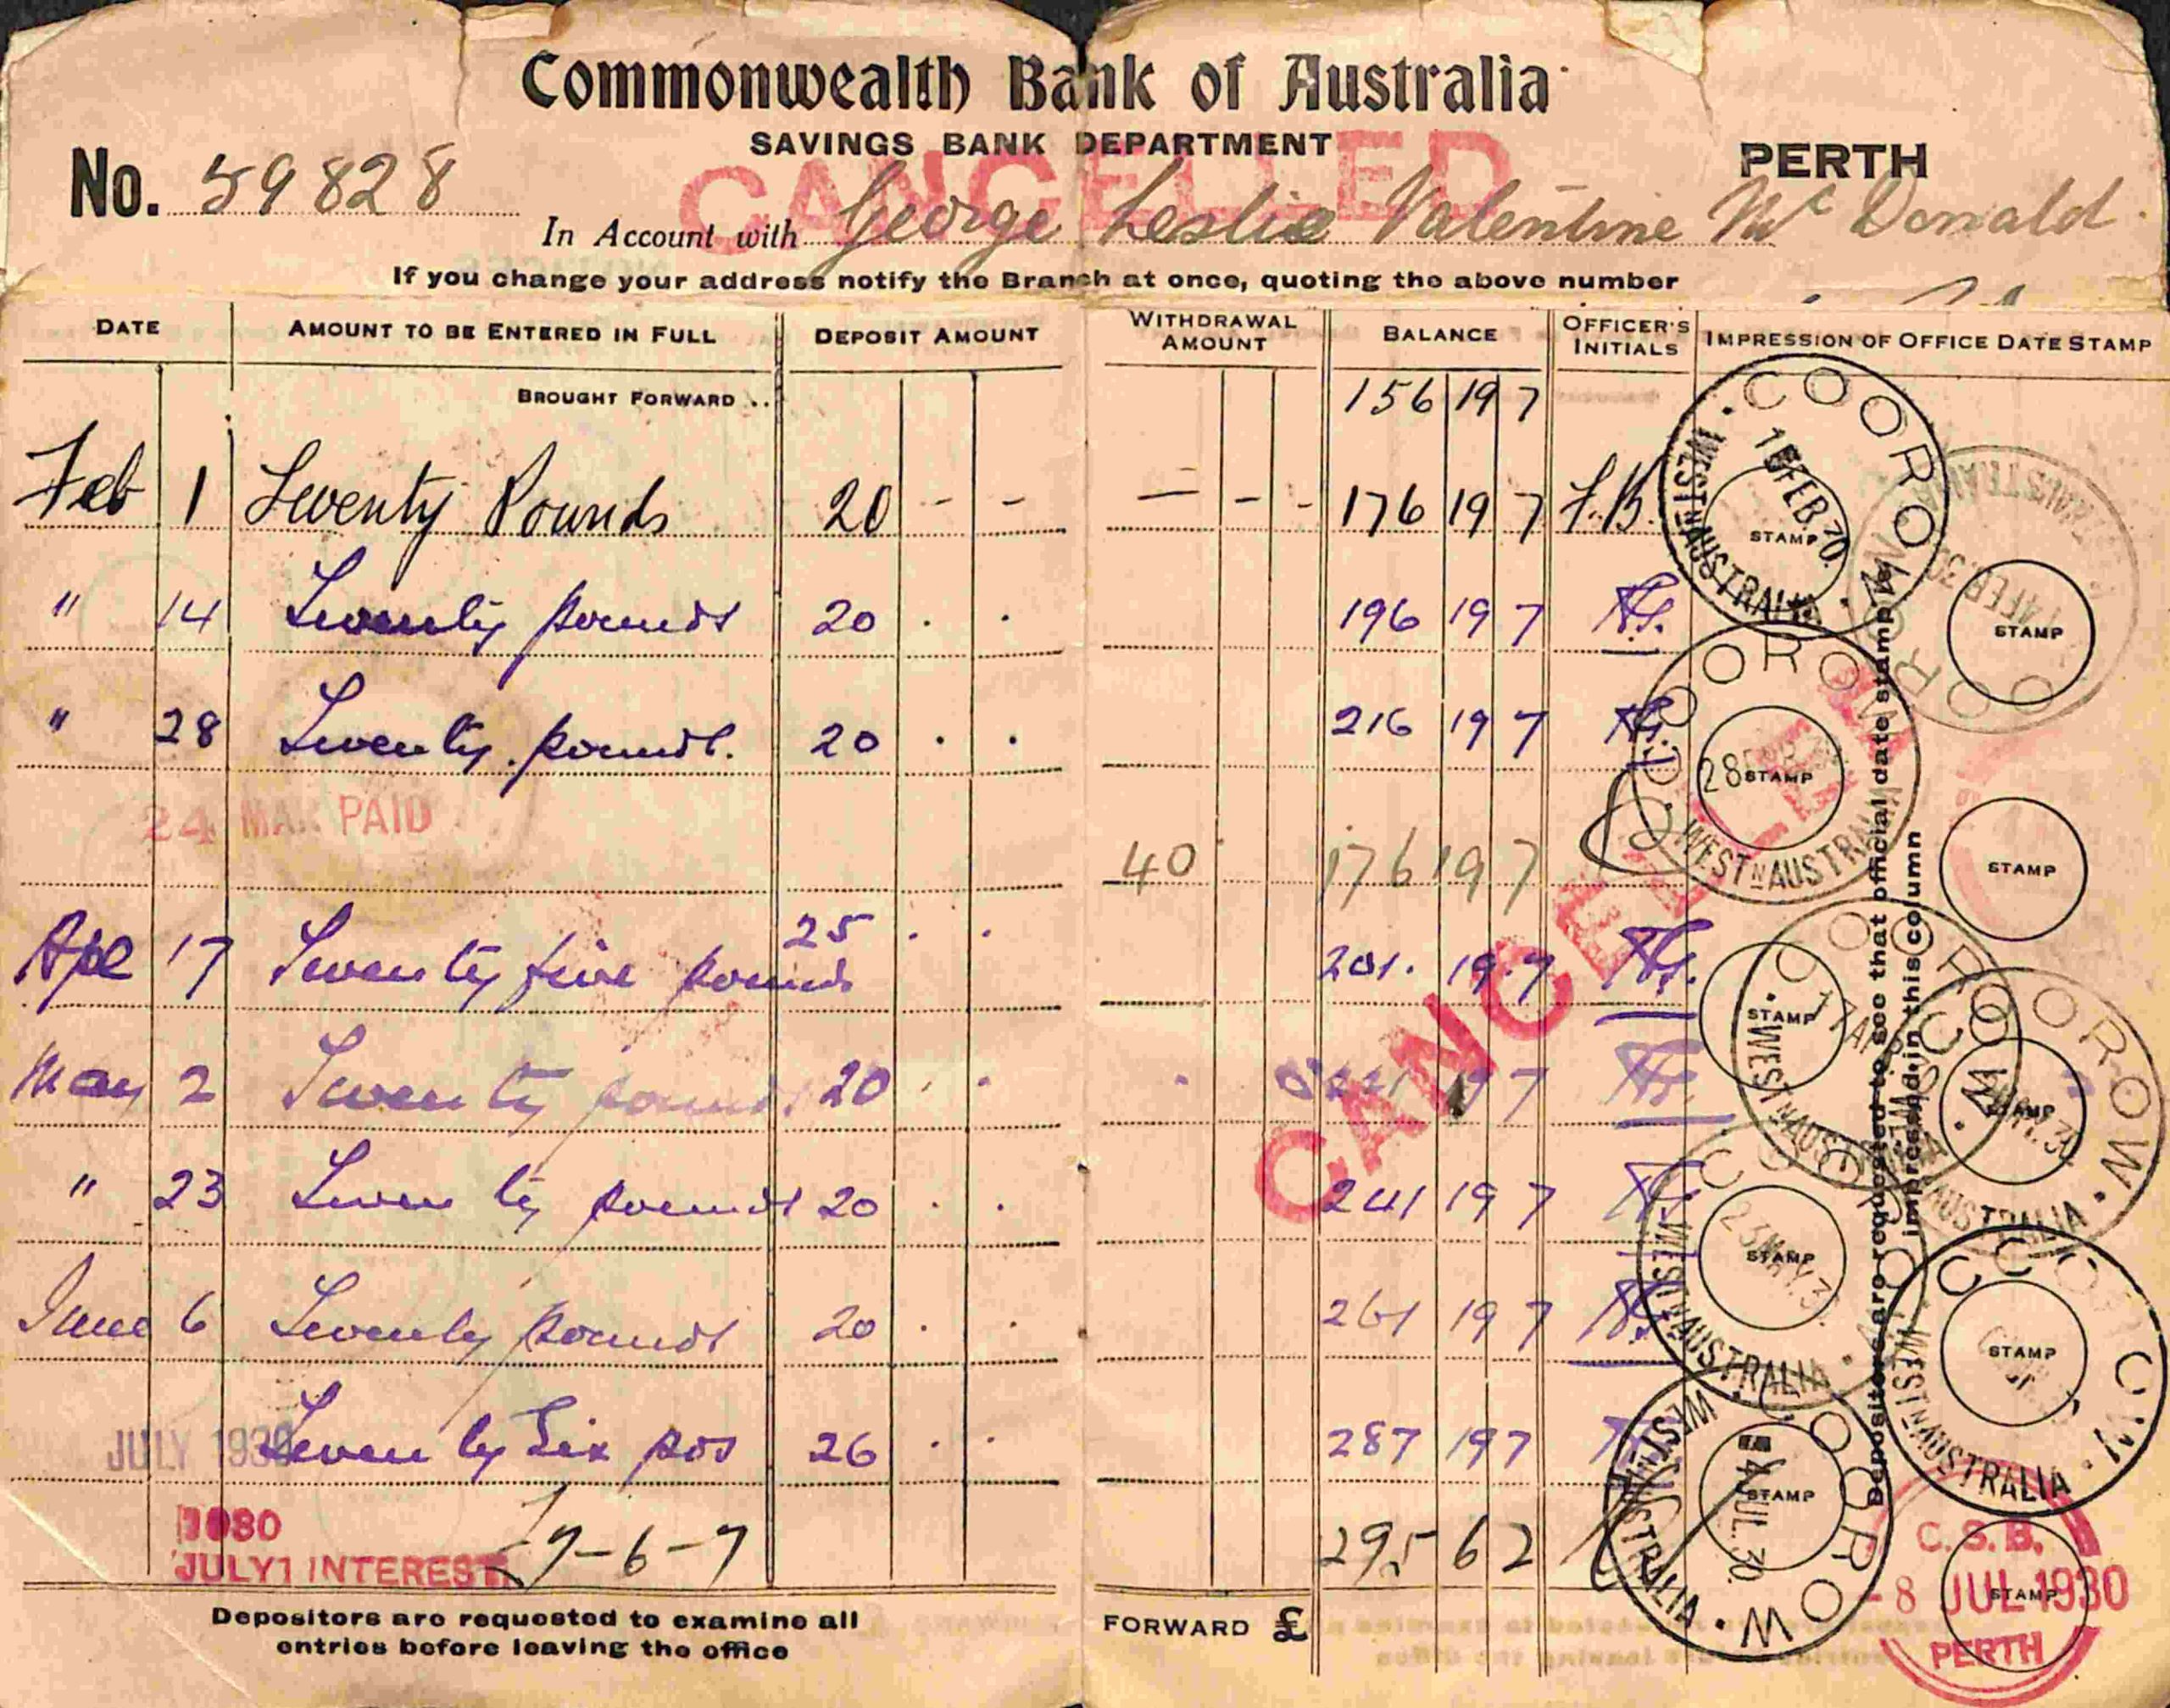 Commonwealth Bank of Australia
SAVINGS BANK DEPARTMENT
PERTH
CANCELLED
No. 59828
In Account with George Leslie Valentine Mc Donald
If you change your address notify the Branch at once, quoting the above number
DATE AMOUNT TO BE ENTERED IN FULL DEPOSIT AMOUNT WITHDRAWAL AMOUNT BALANCE OFFICER'S INITIALS IMPRESSION OF OFFICE DATE STAMP
BROUGHT FORWARD .. 156 19 7
Feb 1 Twenty Pounds 20 - - — - - 176 19 7 F.B.
" 14 Twenty pounds 20 . . 196 19 7
" 28 Twenty pounds. 20 . . 216 19 7
24 MAR PAID 40 176 19 7
Ape 17 Twenty five pounds 25 . . 201. 19.7
May 2 Twenty pounds 20 . . 221 19 7
" 23 Twenty pounds 20 . . 241 19 7
June 6 Twenty pounds 20 . . 261 19 7
JULY 1930 Twenty Six pds 26 . . 287 19 7
1930
JULY 1 INTEREST 7-6-7 295 6 2
FORWARD £
Depositors are requested to examine all
entries before leaving the office
Depositors are requested to see that official date stamp is
impressed in this column
CANCELLED
COOROW
WESTN AUSTRALIA
1 FEB. 
STAMP
14 FEB 30
STAMP
COOROW
WESTN AUSTRALIA
28
STAMP
STAMP
COOROW
WESTN AUSTRALIA
17 AP
STAMP
COOROW
AUSTRALIA
STAMP
WESTN AUSTRALIA
23 MAY.3
STAMP
WESTN AUSTRALIA
STAMP
COOROW
WESTN AUSTRALIA
4 JUL.30
STAMP
C.S.B.
-8 JUL 1930
PERTH
STAMP